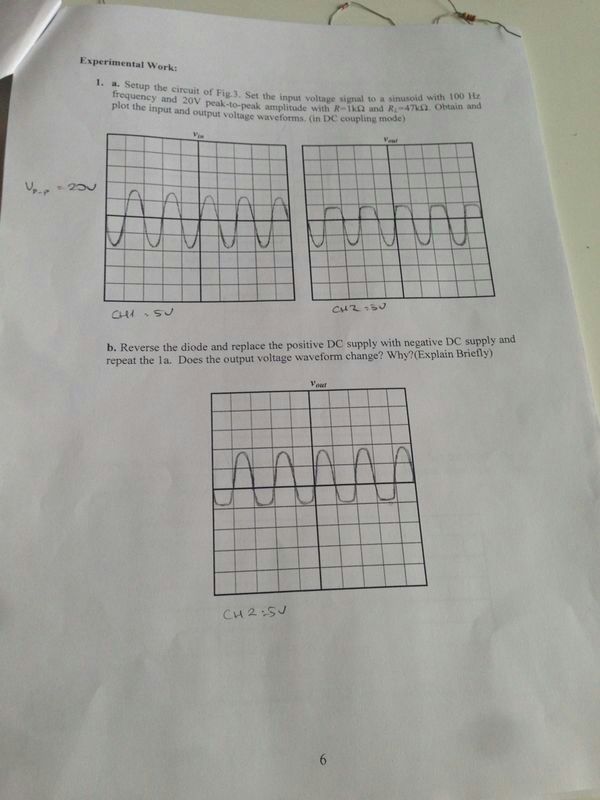 Experimental Work:
1. a. Setup the circuit of Fig.3. Set the input voltage signal to a sinusoid with 100 Hz
frequency and 20V peak-to-peak amplitude with R=1kΩ and RL=47kΩ. Obtain and
plot the input and output voltage waveforms. (in DC coupling mode)
Vin
Vout
Vp-p = 20V
CH1 = 5V
CH2 = 5V
b. Reverse the diode and replace the positive DC supply with negative DC supply and
repeat the 1a. Does the output voltage waveform change? Why?(Explain Briefly)
Vout
CH2 = 5V
6